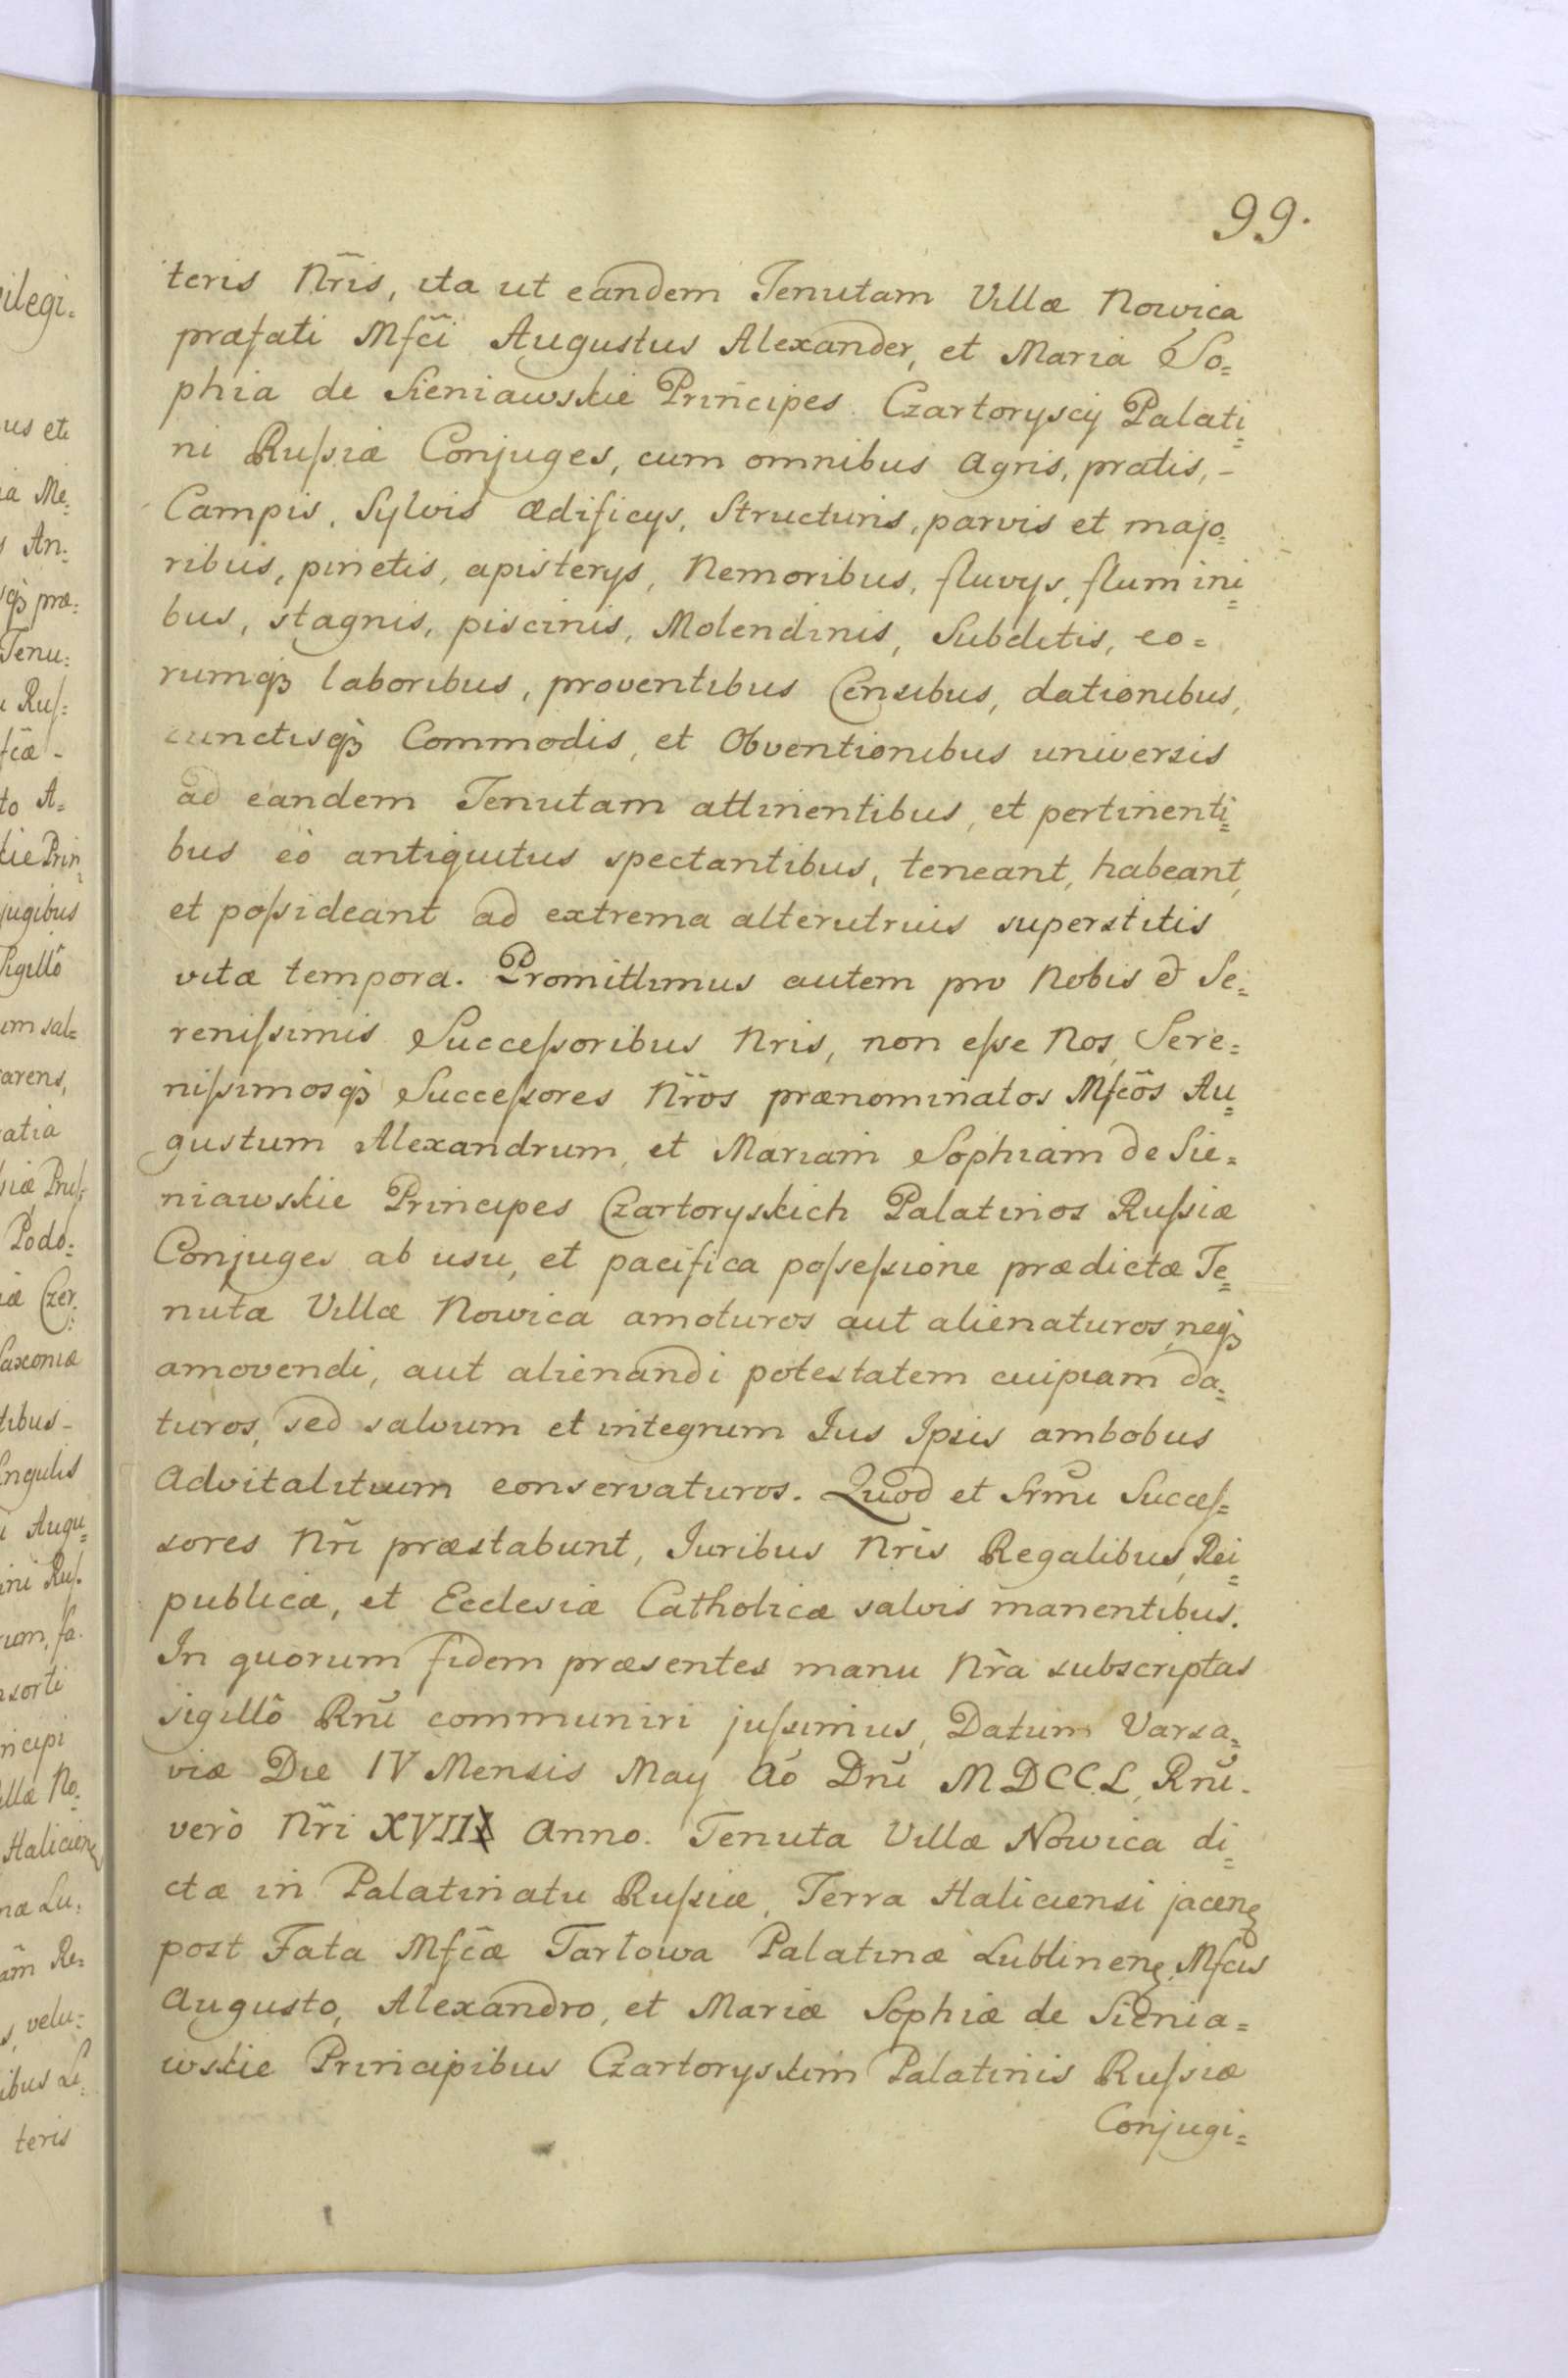 99.
teris Nr̃is, ita ut eandem Tenutam Villæ Nowica
præfati Mfc̃i Augustus Alexander, et Maria So=
phia de Sieniawskie Principes Czartoryscÿ Palati=
ni Ruſsiæ Conjuges, cum omnibus agris, pratis, -
Campis, Sylvis ædificÿs, Structuris, parvis et majo=
ribus, pinetis, apisterÿs, Nemoribus, fluvÿs, flumini=
bus, stagnis, piscinis, Molendinis, Subditis, eo=
rumqꝫ laboribus, proventibus Censibus, dationibus,
cunctisqꝫ Commodis, et Obventionibus universis
ad eandem Tenutam attinentibus, et pertinenti=
bus eò antiquitus spectantibus, teneant, habeant,
et poſsideant ad extrema alterutrius superstitis
vitæ tempora. Promittimus autem pro Nobis & Se=
reniſsimis Succeſsoribus Nris, non eſse Nos, Sere=
niſsimosqꝫ Succeſsores Nr̃os prænominatos Mfc̃os Au=
gustum Alexandrum, et Mariam Sophiam de Sie=
niawskie Principes Czartoryskich Palatinos Ruſsiæ
Conjuges ab usu, et pacifica poſseſsione prædictæ Te=
nutæ Villæ Nowica amoturos aut alienaturos, neqꝫ
amovendi, aut alienandi potestatem cuipiam da=
turos, sed salvum et integrum Jus Ipsis ambobus
advitalitium conservaturos. Quod et Srm̃i Succeſ=
sores Nr̃i præstabunt, Juribus Nr̃is Regalibus, Rei=
publicæ, et Ecclesiæ Catholicæ salvis manentibus.
In quorum fidem præsentes manu Nr̃a subscriptas
sigillô Rñi communiri juſsimus, Datum Varsa=
viæ Die IV Mensis Maÿ Aõ Dñi MDCCL, Rñi
verò Nr̃i XVII Anno. Tenuta Villæ Nowica di=
ctæ in Palatinatu Ruſsiæ, Terra Haliciensi jacenꝫ
post Fata Mfc̃æ Tarłowa Palatinæ Lublinenꝫ, Mfcis
Augusto, Alexandro, et Mariæ Sophiæ de Sienia=
wskie Principibus Czartoryskim Palatinis Ruſsiæ
Conjugi=